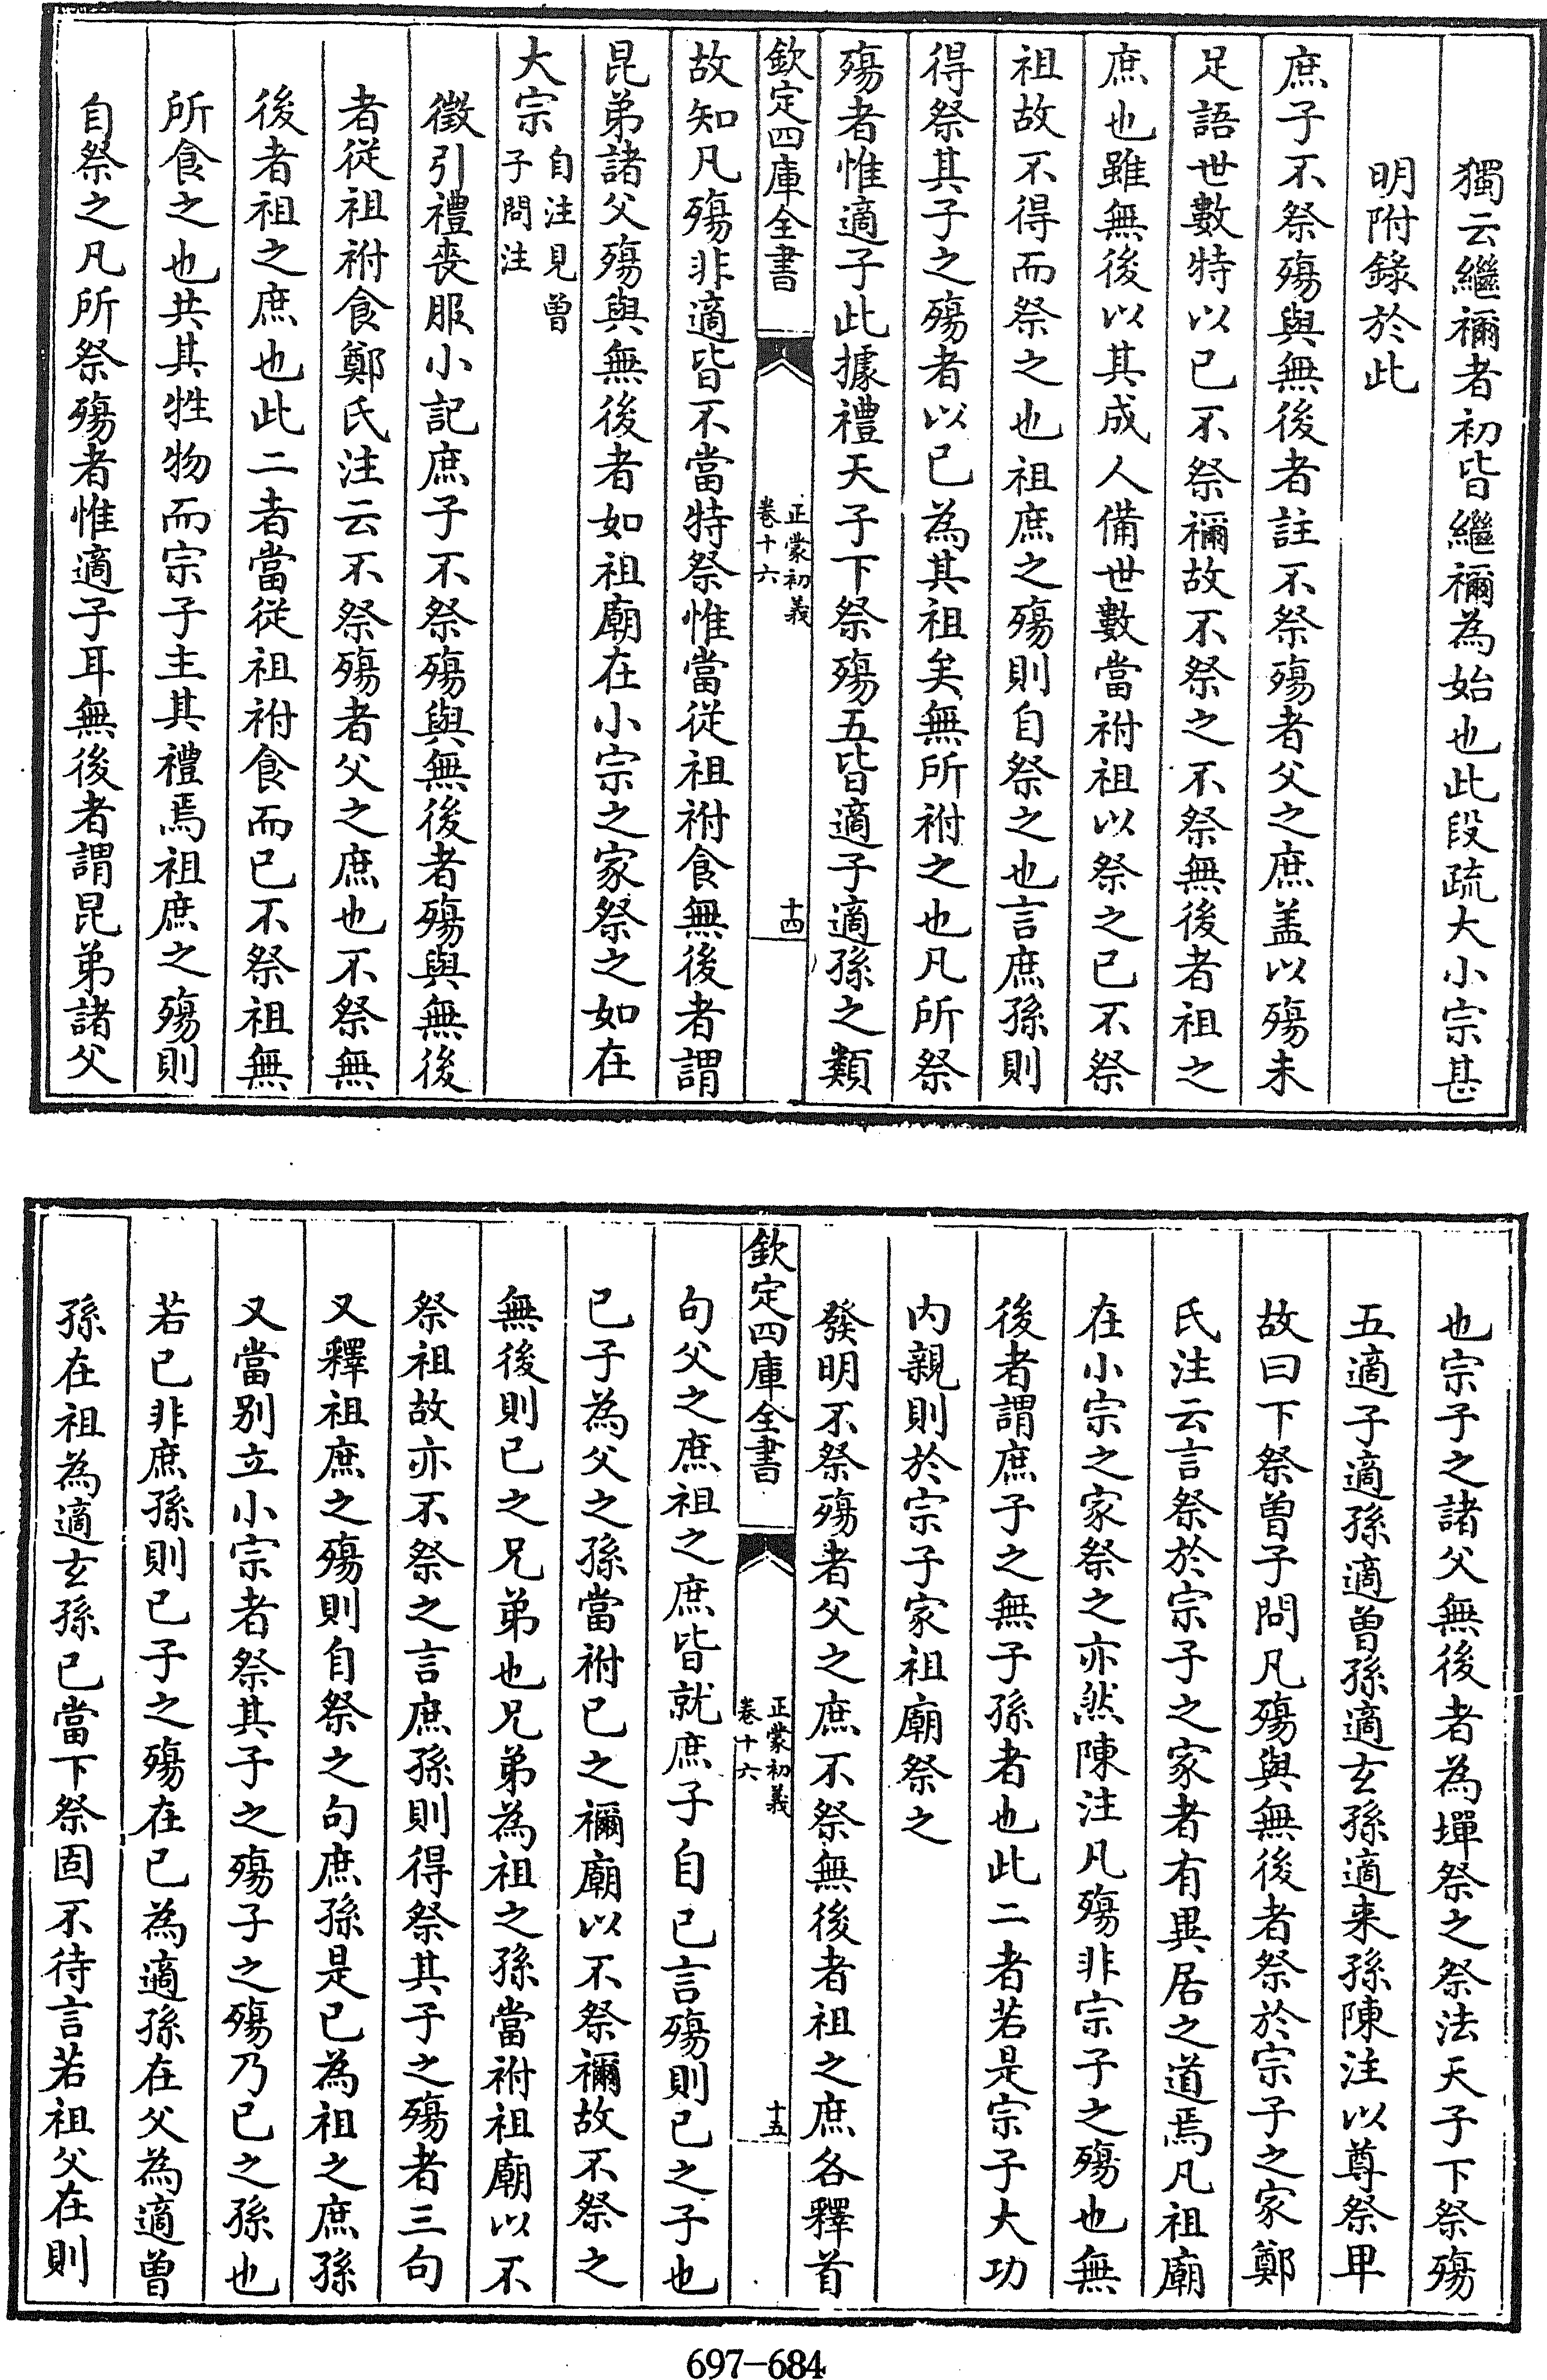 獨云繼禰者初皆繼禰為始也此段疏大小宗甚
明附錄於此
庶子不祭殤與無後者註不祭殤者父之庶盖以殤未
足語世數特以已不祭禰故不祭之不祭無後者祖之
庶也雖無後以其成人備世數當祔祖以祭之已不祭
祖故不得而祭之也祖庶之殤則自祭之也言庶孫則
得祭其子之殤者以已為其祖矣無所祔之也凡所祭
殤者惟適子此據禮天子下祭殤五皆適子適孫之類
欽定四庫全書
正蒙初義
卷十六
十四
故知凡殤非適皆不當特祭惟當從祖祔食無後者謂
昆弟諸父殤與無後者如祖廟在小宗之家祭之如在
大宗自注見曾
子問注
徵引禮喪服小記庶子不祭殤與無後者殤與無後
者從祖祔食鄭氏注云不祭殤者父之庶也不祭無
後者祖之庶也此二者當從祖祔食而已不祭祖無
所食之也共其牲物而宗子主其禮焉祖庶之殤則
自祭之凡所祭殤者惟適子耳無後者謂昆弟諸父
也宗子之諸父無後者為墠祭之祭法天子下祭殤
五適子適孫適曾孫適玄孫適来孫陳注以尊祭卑
故曰下祭曾子問凡殤與無後者祭於宗子之家鄭
氏注云言祭於宗子之家者有異居之道焉凡祖廟
在小宗之家祭之亦然陳注凡殤非宗子之殤也無
後者謂庶子之無子孫者也此二者若是宗子大功
内親則於宗子家祖廟祭之
發明不祭殤者父之庶不祭無後者祖之庶各釋首
欽定四庫全書
正蒙初義
卷十六
十五
句父之庶祖之庶皆就庶子自已言殤則已之子也
已子為父之孫當祔已之禰廟以不祭禰故不祭之
無後則已之兄弟也兄弟為祖之孫當祔祖廟以不
祭祖故亦不祭之言庶孫則得祭其子之殤者三句
又釋祖庶之殤則自祭之句庶孫是已為祖之庶孫
又當别立小宗者祭其子之殤子之殤乃已之孫也
若已非庶孫則已子之殤在已為適孫在父為適曾
孫在祖為適玄孫已當下祭固不待言若祖父在則
697-684